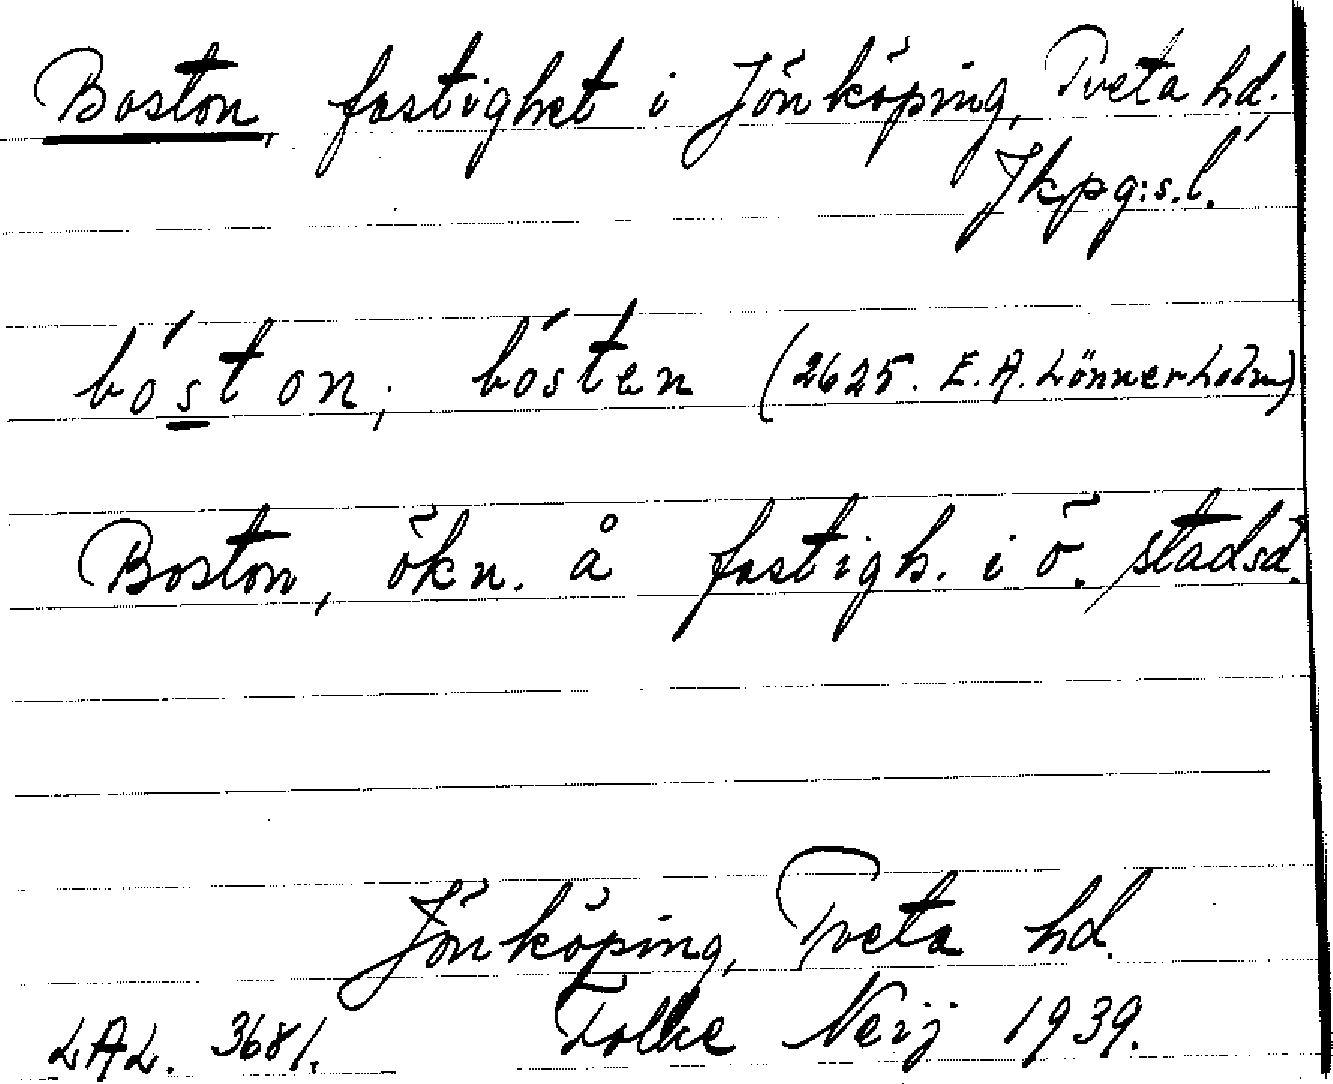 Boston, fastighet i Jönköping, Tveta hd.
Jkpg:s.l.
bóston; bósten (2625. E.A. Lönnerholm)
Boston, ökn. å fastigh. i ö. stadsd.
Jönköping, Tveta hd.
LAL. 3681. Folke Neij 1939.